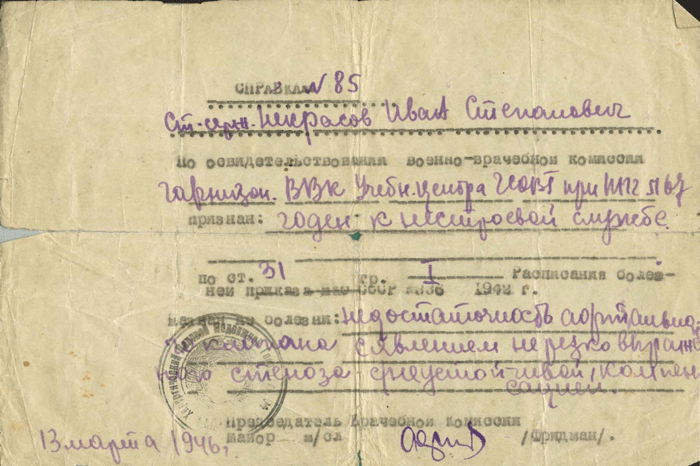 СПРАВКА N 85
Ст. серж. Некрасов Иван Степанович
По освидетельствовании военно-врачебной комиссии
гарнизон. ВВК Учебн. центра при
признан: годен к нестроевой службе
по ст. 31 гр. I Расписания болез-
ней приказа НКО СССР №336 1942 г.
по болезни: недостаточность аортально-
го клапана с явлением не резко выражен
ного стеноза с неустойчивой компен
сацией.
Председатель Врачебной Комиссии
Майор м/сл /Фридман/.
13 марта 1946,